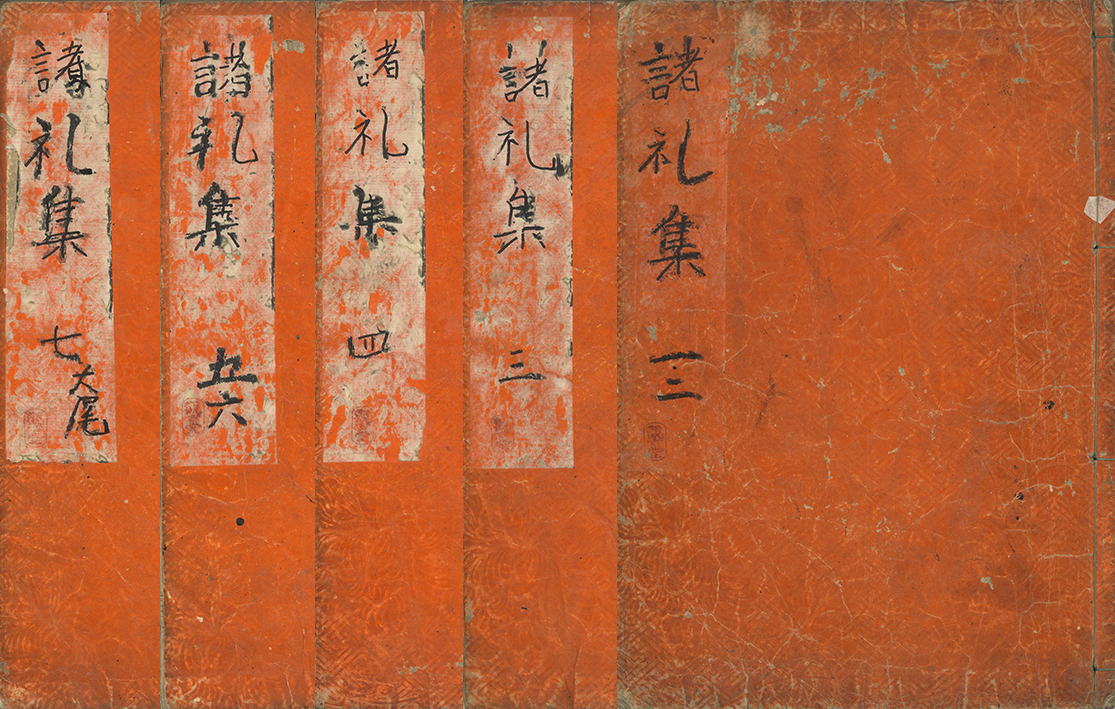 諸礼集 一二
諸礼集 三
諸礼集 四
諸礼集 五六
諸礼集 七大尾